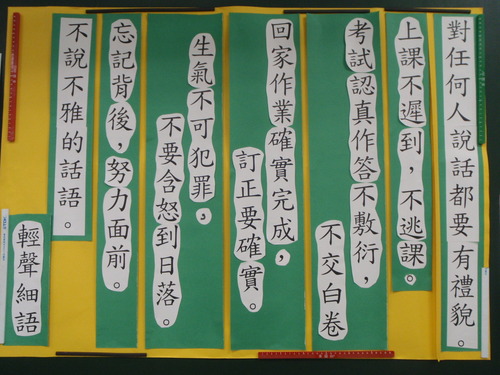 對任何人說話都要有禮貌。
上課不遲到，不逃課。
考試認真作答不敷衍，
不交白卷
回家作業確實完成，
訂正要確實。
生氣不可犯罪，
不要含怒到日落。
忘記背後，努力面前。
不說不雅的話語。
輕聲細語